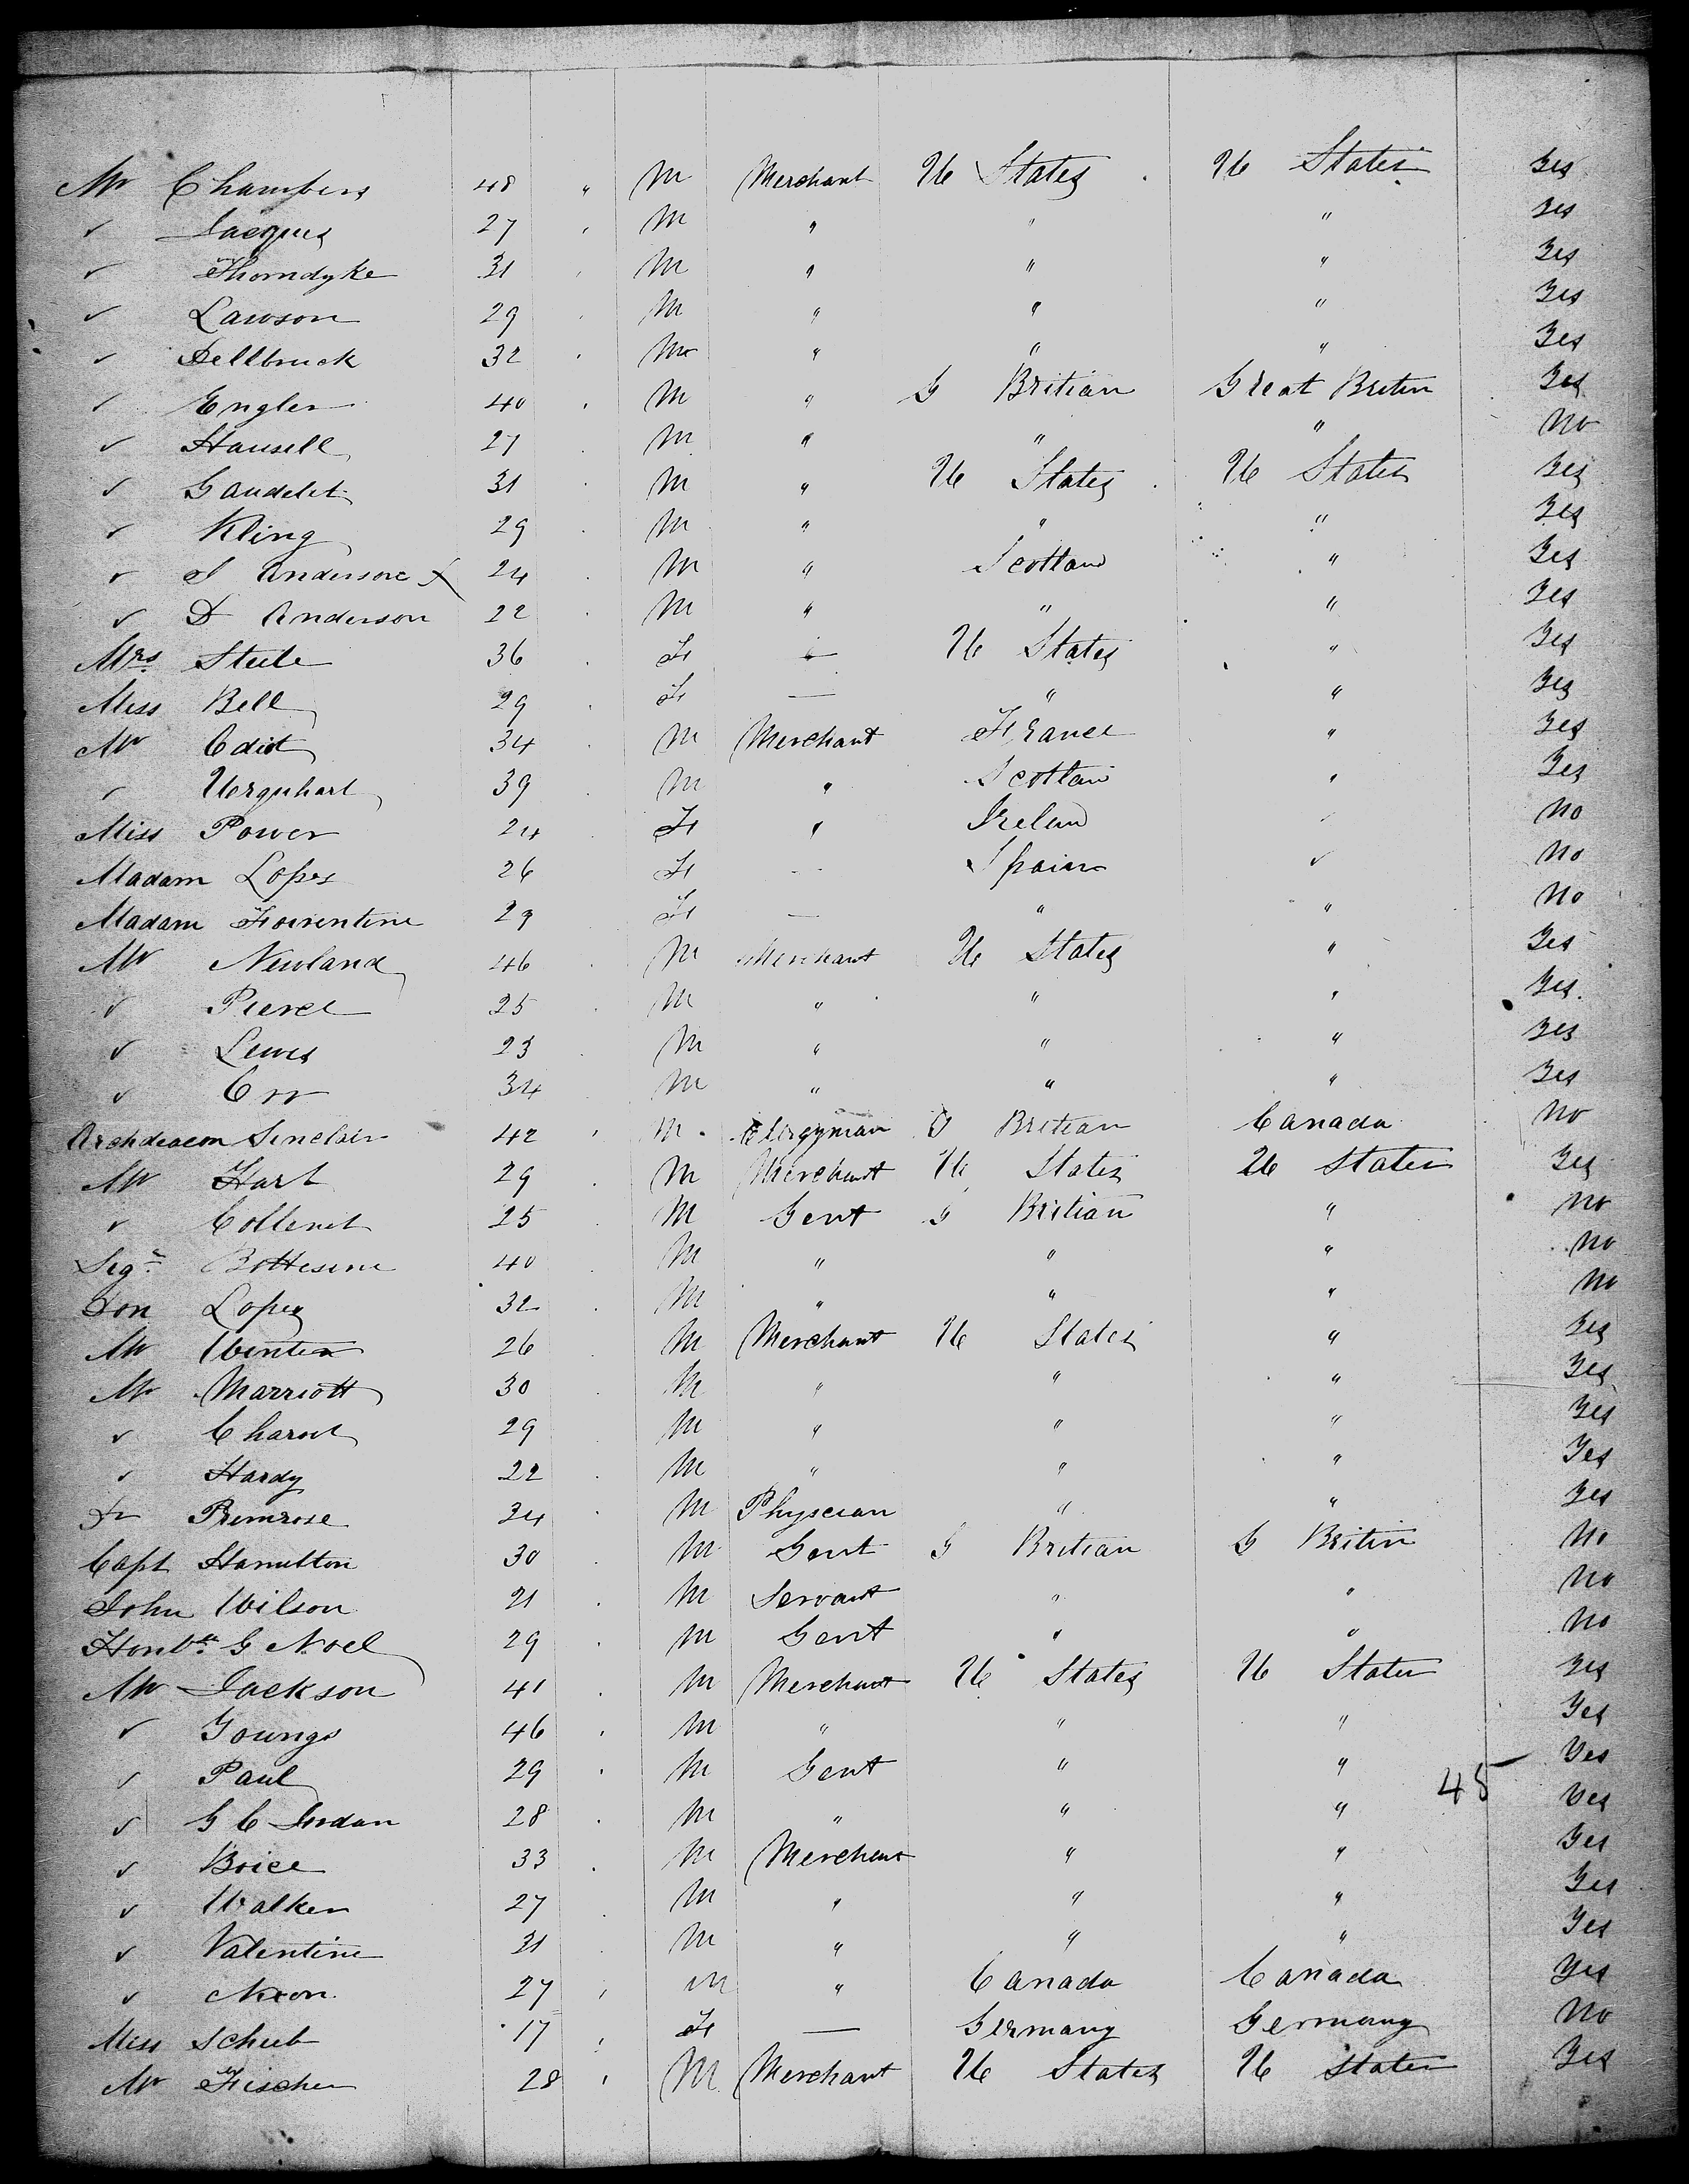 Mr Chambers 48 " M Merchant U States U States Yes
✓ Jacques 27 " M " " " Yes
✓ Thorndyke 31 " M " " " Yes
✓ Lawson 29 " M " " " Yes
✓ Dellbruck 32 " M " " " Yes
✓ Engler 40 " M " G Britian Great Britn Yes
✓ Hansell 27 M " " " No
✓ Gaudelet 31 M " U States U States Yes
✓ Kling 29 M " " " Yes
✓ J Anderson X 24 M " Scotland " Yes
✓ D Anderson 22 M " " " Yes
Mrs Steele 36 F — U States " Yes
Miss Bell 29 F — " " Yes
Mr Ediot 34 M Merchant France " Yes
✓ Uerquhart 39 M " Scotlan " Yes
Miss Power 24 F " Irelan " No
Madam Lopes 26 F — Spain " No
Madam Fiorentine 29 F — " " No
Mr Newland 46 M Merchant U States " Yes
✓ Pierce 25 M " " " Yes
✓ Lewis 23 M " " " Yes
✓ Orr 34 M " " " Yes
Archdeacon Sinclair 42 " M Clergyman G Britian Canada No
Mr Hart 29 M Merchant U States U States Yes
✓ Collenet 25 M Gent G Britian " No
Sigr Bottesine 40 M " " " No
Don Lopez 32 M " " " No
Mr Winter 26 M Merchant U States " Yes
Mr Marriott 30 M " " " Yes
✓ Charut 29 M " " " Yes
✓ Hardy 22 M " " " Yes
Dr Primrose 34 M Physcian " " Yes
Capt Hamilton 30 M Gent G Britian G Britin No
John Wilson 21 M Servant " " No
Honble G Noel 29 M Gent " " No
Mr Jackson 41 M Merchant U States U States Yes
✓ Youngs 46 M " " " Yes
✓ Paul 29 M Gent " " Yes
45
✓ G C Jordan 28 M " " " Yes
✓ Brice 33 M Merchant " " Yes
✓ Walker 27 M " " " Yes
✓ Valentine 31 M " " " Yes
✓ Nixon 27 " M " Canada Canada Yes
Miss Schub 17 " F — Germany Germany No
Mr Fischer 28 " M Merchant U States U States Yes